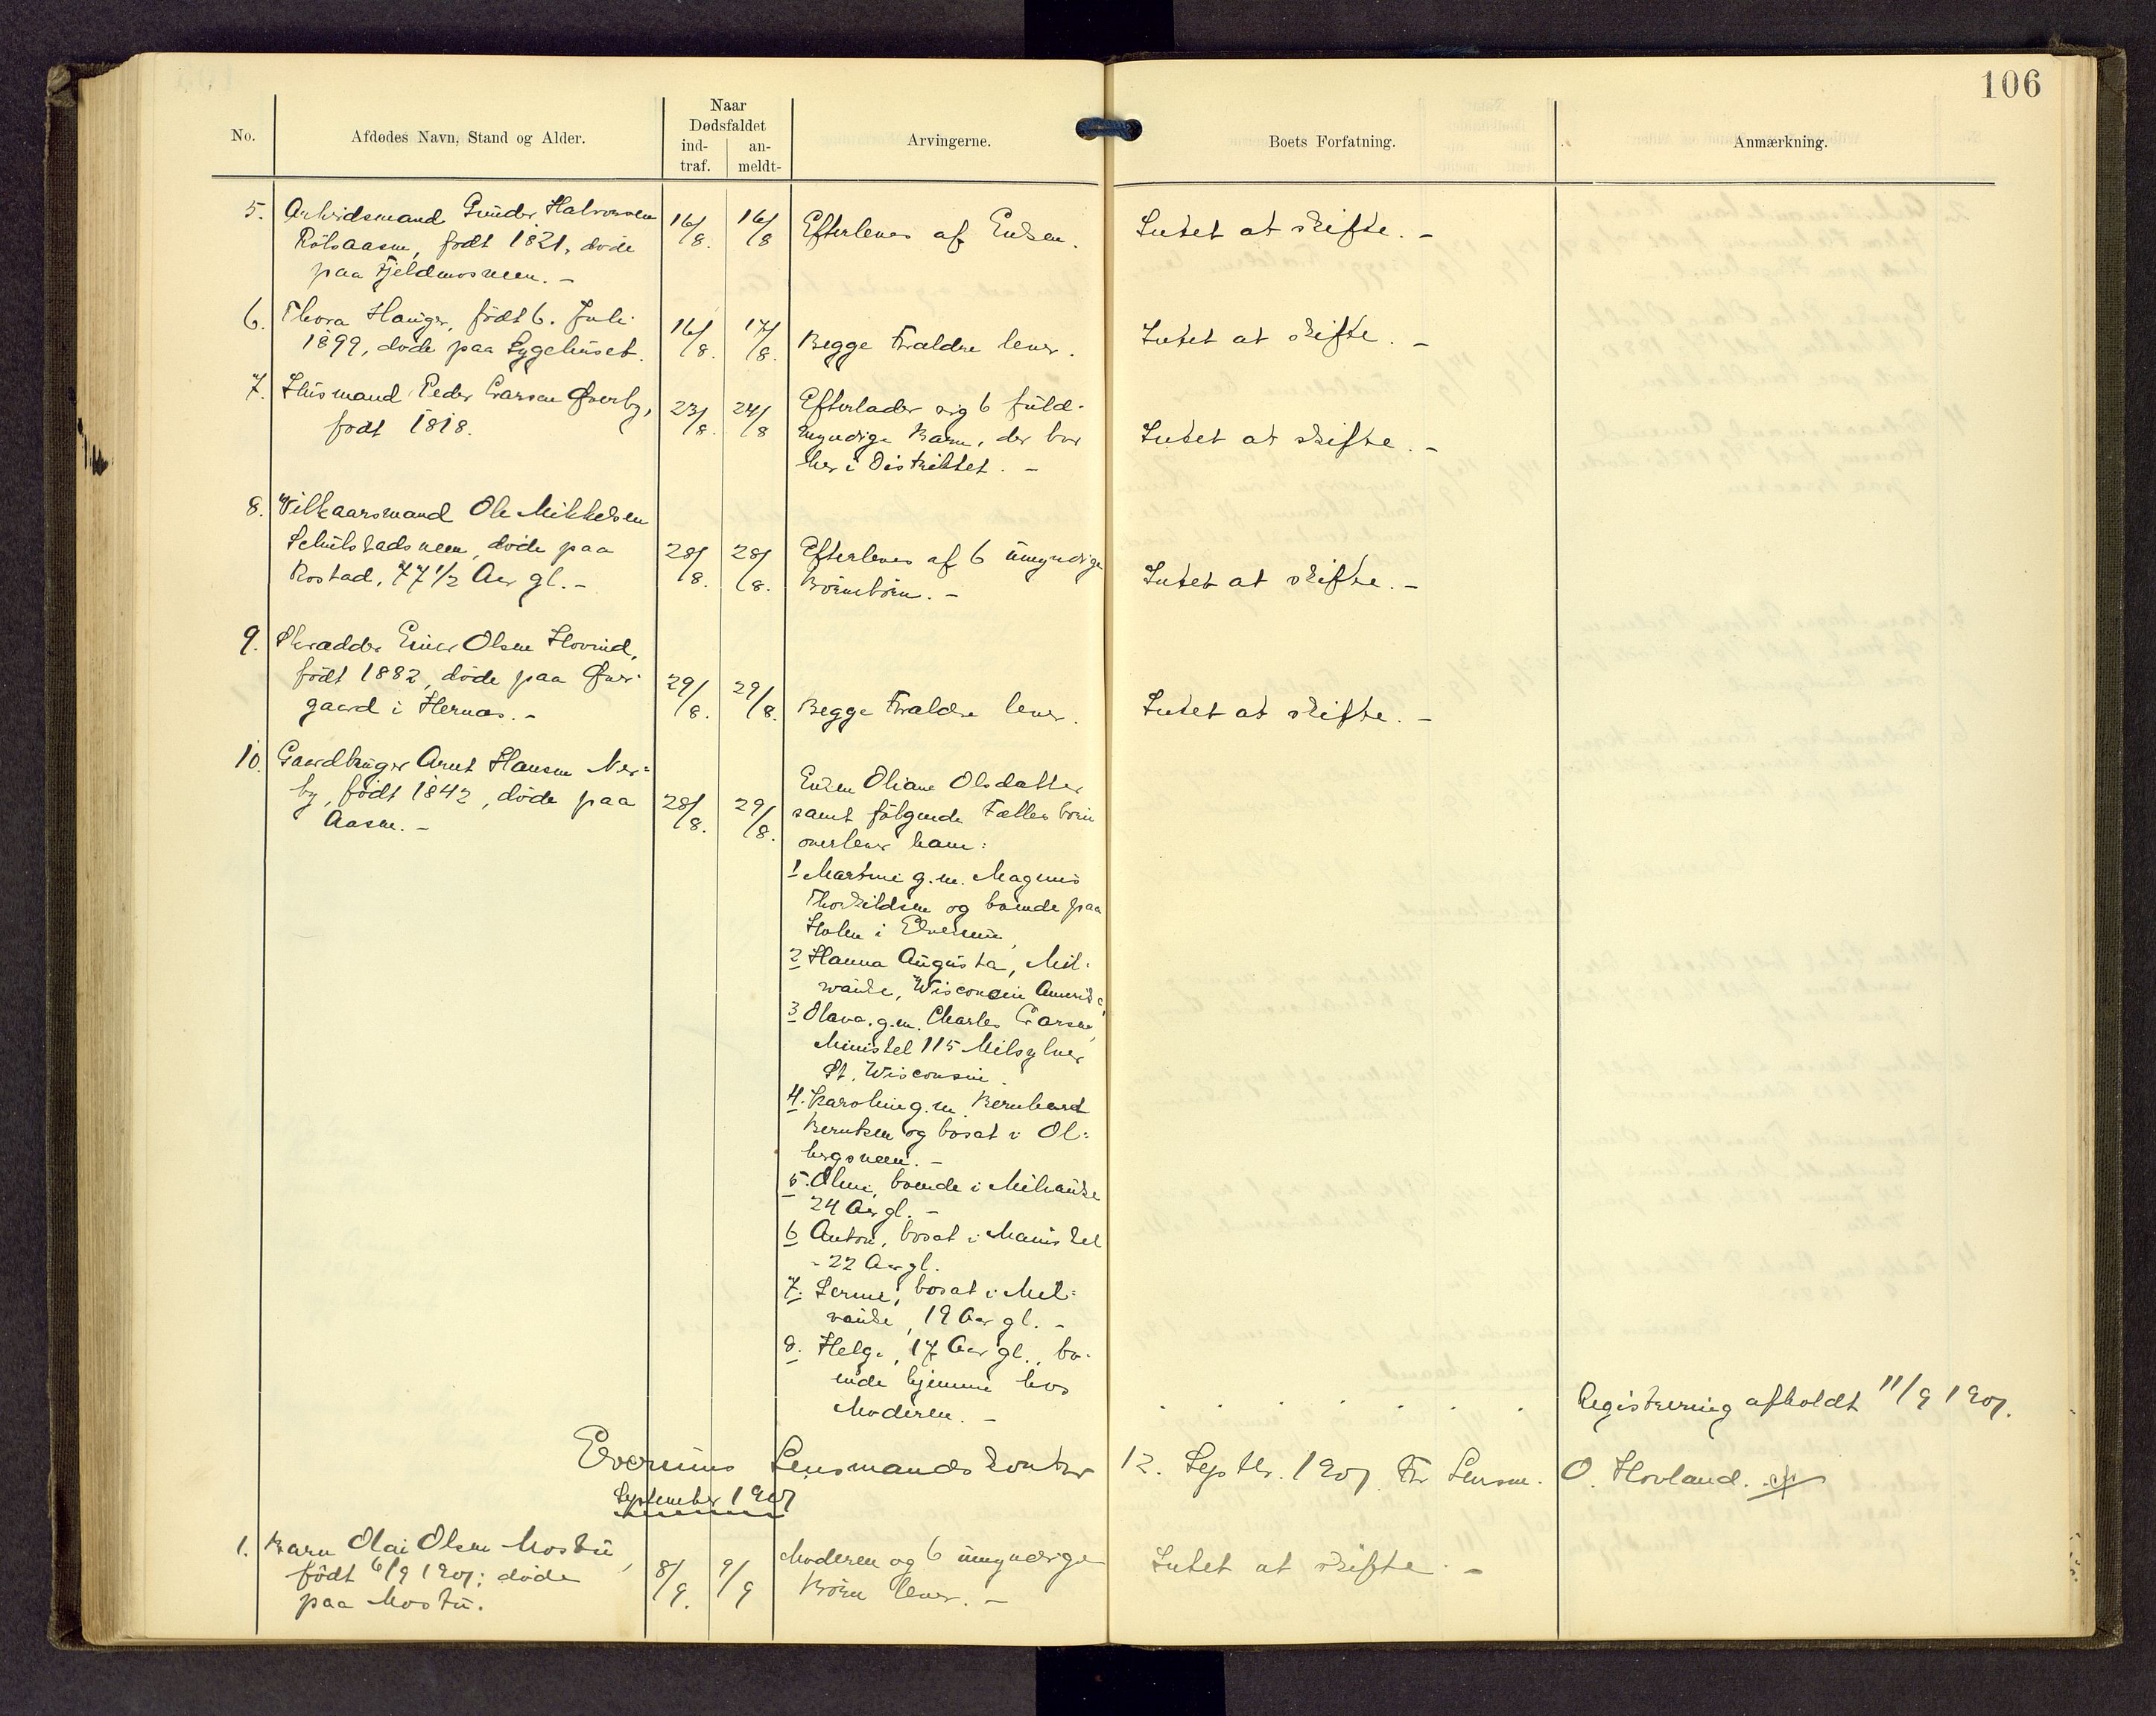 106
No.
Afdødes Navn, Stand og Alder.
Naar
Dødsfaldet
ind-
traf.
an-
meldt-
Arvingerne.
Boets Forfatning.
Anmærkning.
5. Arbeidsmand Gunder Halvorsen 16/8. 16/8 Efterleves af Enken. Intet at skifte. -
født 1821, døde
paa Fjeldmoseneen. -
6. Thora Hauger, født 6. Juli 16/8. 17/8. Begge Forældre lever. Intet at skifte. -
1899, døde paa Sygehuset.
7. Husmand Peder Larsen Øverby, 23/8. 24/8 Efterlader sig 6 fuld-
født 1818.
myndige Børn, der bor
her i Distriktet. -
Intet at skifte. -
8. Vilkaarsmand Ole Mikkelsen
Schulstadsneen, døde paa
Rostad, 77 1/2 Aar gl. -
28/8. 28/8. Efterleves af 6 umyndige
Børnebørn. -
Intet at skifte. -
9. Skrædder Einer Olsen Hovind,
født 1882, døde paa Øver-
gaard i Hernæs. -
29/8. 29/8. Begge Forældre lever. Intet at skifte. -
10. Gaardbruger Arnt Hansen Ner-
by, født 1842, døde paa
Aasen. -
28/8. 29/8.
Enken Oliane Olsdatter
samt følgende Fællesbørn
overlever ham:
1 Martine g. m. Magnus
Thorkildsen og boende paa
Holen i Elverum,
2 Hanna Augusta, Mil-
wauke, Wisconsin Amerika,
3 Olava. g. m. Charles Larsen,
Manistel 115
St. Wisconsin.
4. Karoline g. m. Bernhard
Berntsen og bosat i Ol-
bergsneen. -
5. Oline, boende i Milvauke
24 Aar gl. -
6 Anton, bosat i Manistel
- 22 Aar gl.
7. Serine, bosat i Mil-
vauke, 19 Aar gl. -
8. Helga, 17 Aar gl., bo-
ende hjemme hos
Moderen. -
. . . . . . . Registrering afholdt 11/9 1907.
Elverums Lensmandskontor 12. Septbr. 1907. For Lensm. O. Hovland.
September 1907
1. Barn Olai Olsen Mostu,
født 6/9 1907; døde
paa Mostu.
8/9. 9/9
Moderen og 6 umyndige
Børn lever. -
Intet at skifte. -